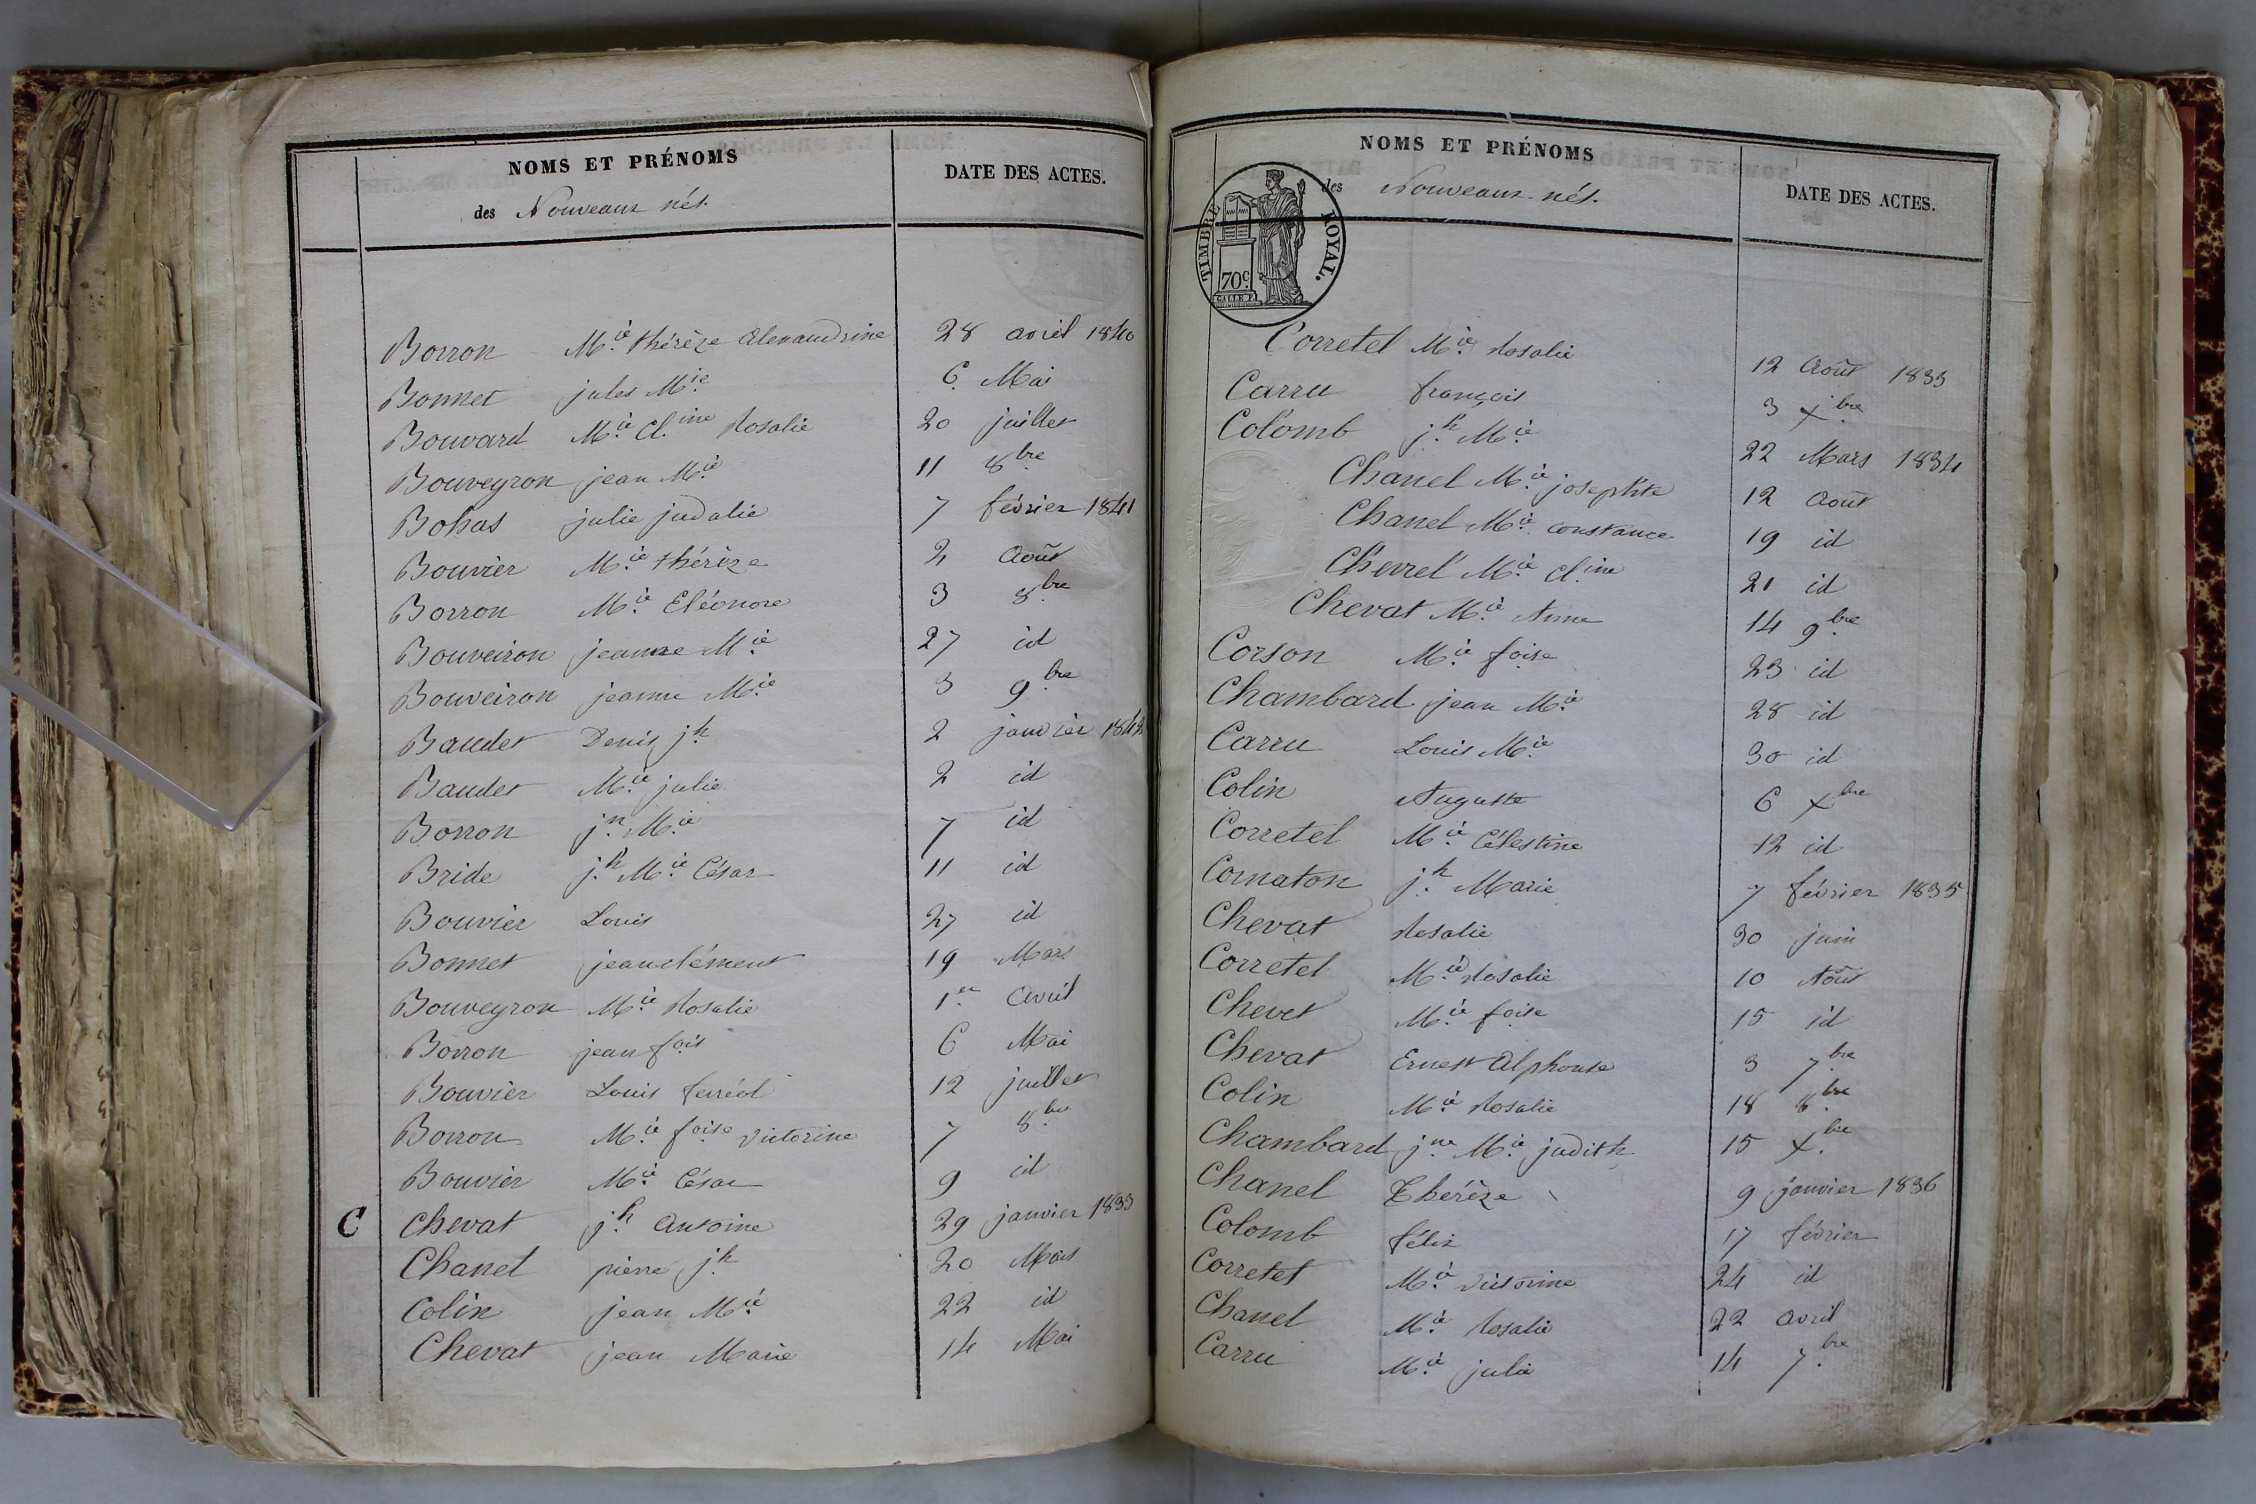 NOMS ET PRÉNOMS
des Nouveaux nés.
DATE DES ACTES.
Borron M.ie thérèze alexandrine 28 avril 1840
Bonnet jules M.ie 6 Mai
Bouvard M.ie Cl.ine Rosalie 20 juillet
Bouveyron jean M.ie 11 8bre
Bohas julie judalie 7 février 1841
Bouvier M.ie thérèze 2 Août
Borron M.ie Eléonore 3 8bre
Bouveiron jeanne M.ie 27 id
Bouveiron jeanne M.ie 3 9bre
Baudet Denis jh 2 janvier 1842
Baudet M.ie julie 2 id
Borron j.n M.ie 7 id
Bride j.h M.ie César 11 id
Bouvier Louis 27 id
Bonnet jean clément 19 Mars
Bouveyron M.ie Rosalie 1.er avril
Borron jean fois 6 Mai
Bouvier Louis ferréol 12 juillet
Borron M.ie foise victorine 7 8bre
Bouvier M.ie César 9 id
C Chevat j.h antoine 29 janvier 1833
Chanel pierre j.h 20 Mars
Colin jean M.ie 22 id
Chevat jean Marie 14 Mai
NOMS ET PRÉNOMS
des Nouveaux nés.
DATE DES ACTES.
TIMBRE ROYAL.
70c.
Corretel M.ie Rosalie 12 Août 1833
Carru françois 3 xbre
Colomb j.h M.ie 22 Mars 1834
Chanel M.ie josephte 12 août
Chanel M.ie constance 19 id
Chevrel M.ie Cl.ine 21 id
Chevat M.ie Anne 14 9bre
Corson M.ie foise 23 id
Chambard jean M.ie 28 id
Carru Louis M.ie 30 id
Colin Auguste 6 xbre
Corretel M.ie Célestine 12 id
Cornaton j.h Marie 7 février 1835
Chevat Rosalie 30 juin
Corretel M.ie Rosalie 10 Août
Chevet M.ie foise 15 id
Chevat Ernest alphonse 3 7bre
Colin M.ie Rosalie 18 8bre
Chambard j.ne M.ie judith 15 xbre
Chanel Thérèze 9 janvier 1836
Colomb félix 17 février
Corretet M.ie victorine 24 id
Chanel M.ie Rosalie 22 avril
Carru M.ie julie 14 7bre